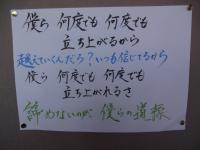 僕ら 何度でも 何度でも
立ち上がるから
越えていくんだろ？いつも信じてるから
僕ら 何度でも 何度でも
立ち上がれるさ
諦めないのが 僕らの道標